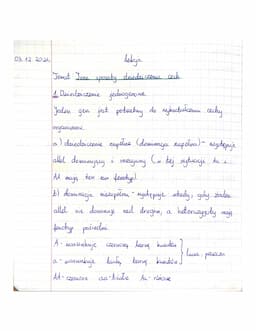 03.12.2024 Lekcja
Temat: Inne sposoby dziedziczenia cech
1. Dziedziczenie jednogenowe
Jeden gen jest potrzebny do wykształcenia cechy
organizmu
a) dziedziczenie zupełne (dominacja zupełna) - występuje
allel dominujący i recesywny (w tej sytuacji Aa i
AA mają ten sam fenotyp)
b) dominacja niezupełna - występuje wtedy, gdy żaden
allel nie dominuje nad drugim, a heterozygoty mają
fenotyp pośredni
A - warunkuje czerwoną barwę kwiatów
a - warunkuje białą barwę kwiatów
AA - czerwone aa - białe Aa - różowe